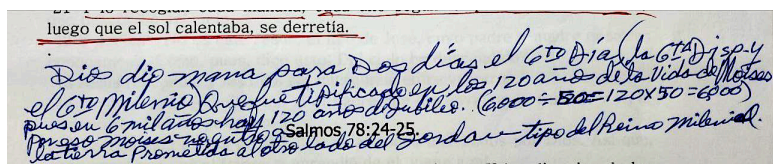 21 Y lo recogían cada mañana, cada uno según
luego que el sol calentaba, se derretía.
Dios dio mana para Dos días el 6to Día (la 6ta Disp. y
el 6to Milenio) Que fue tipificado en los 120 años de la Vida de Moises
pues en 6 mil años hay 120 años de Jubileo. (6,000 ÷ 50 = 120 X 50 = 6,000)
Por eso moises no entro a
Salmos 78:24-25.
la tierra Prometida al otro lado del Jordan tipo del Reino Milenial.